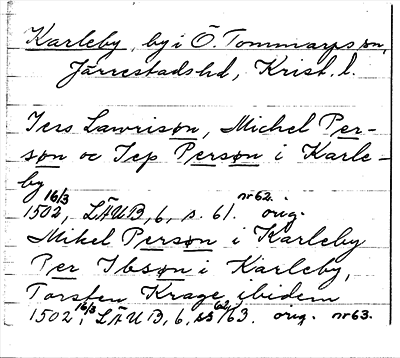 Karleby, by i Ö. Tommarps sn,
Järrestads hd, Krist. l.
Jess Lawrisøn, Michel Per-
søn oc Jep Persøn i Karle-
by
16/3 1502, LÄUB, 6, s. 61. nr 62. orig.
Mikel Persøn i Karleby
Per Ibsøn i Karleby,
Torsten Krage ibidem
1502 16/3, LÄUB, 6, ss 62/63. orig. nr 63.